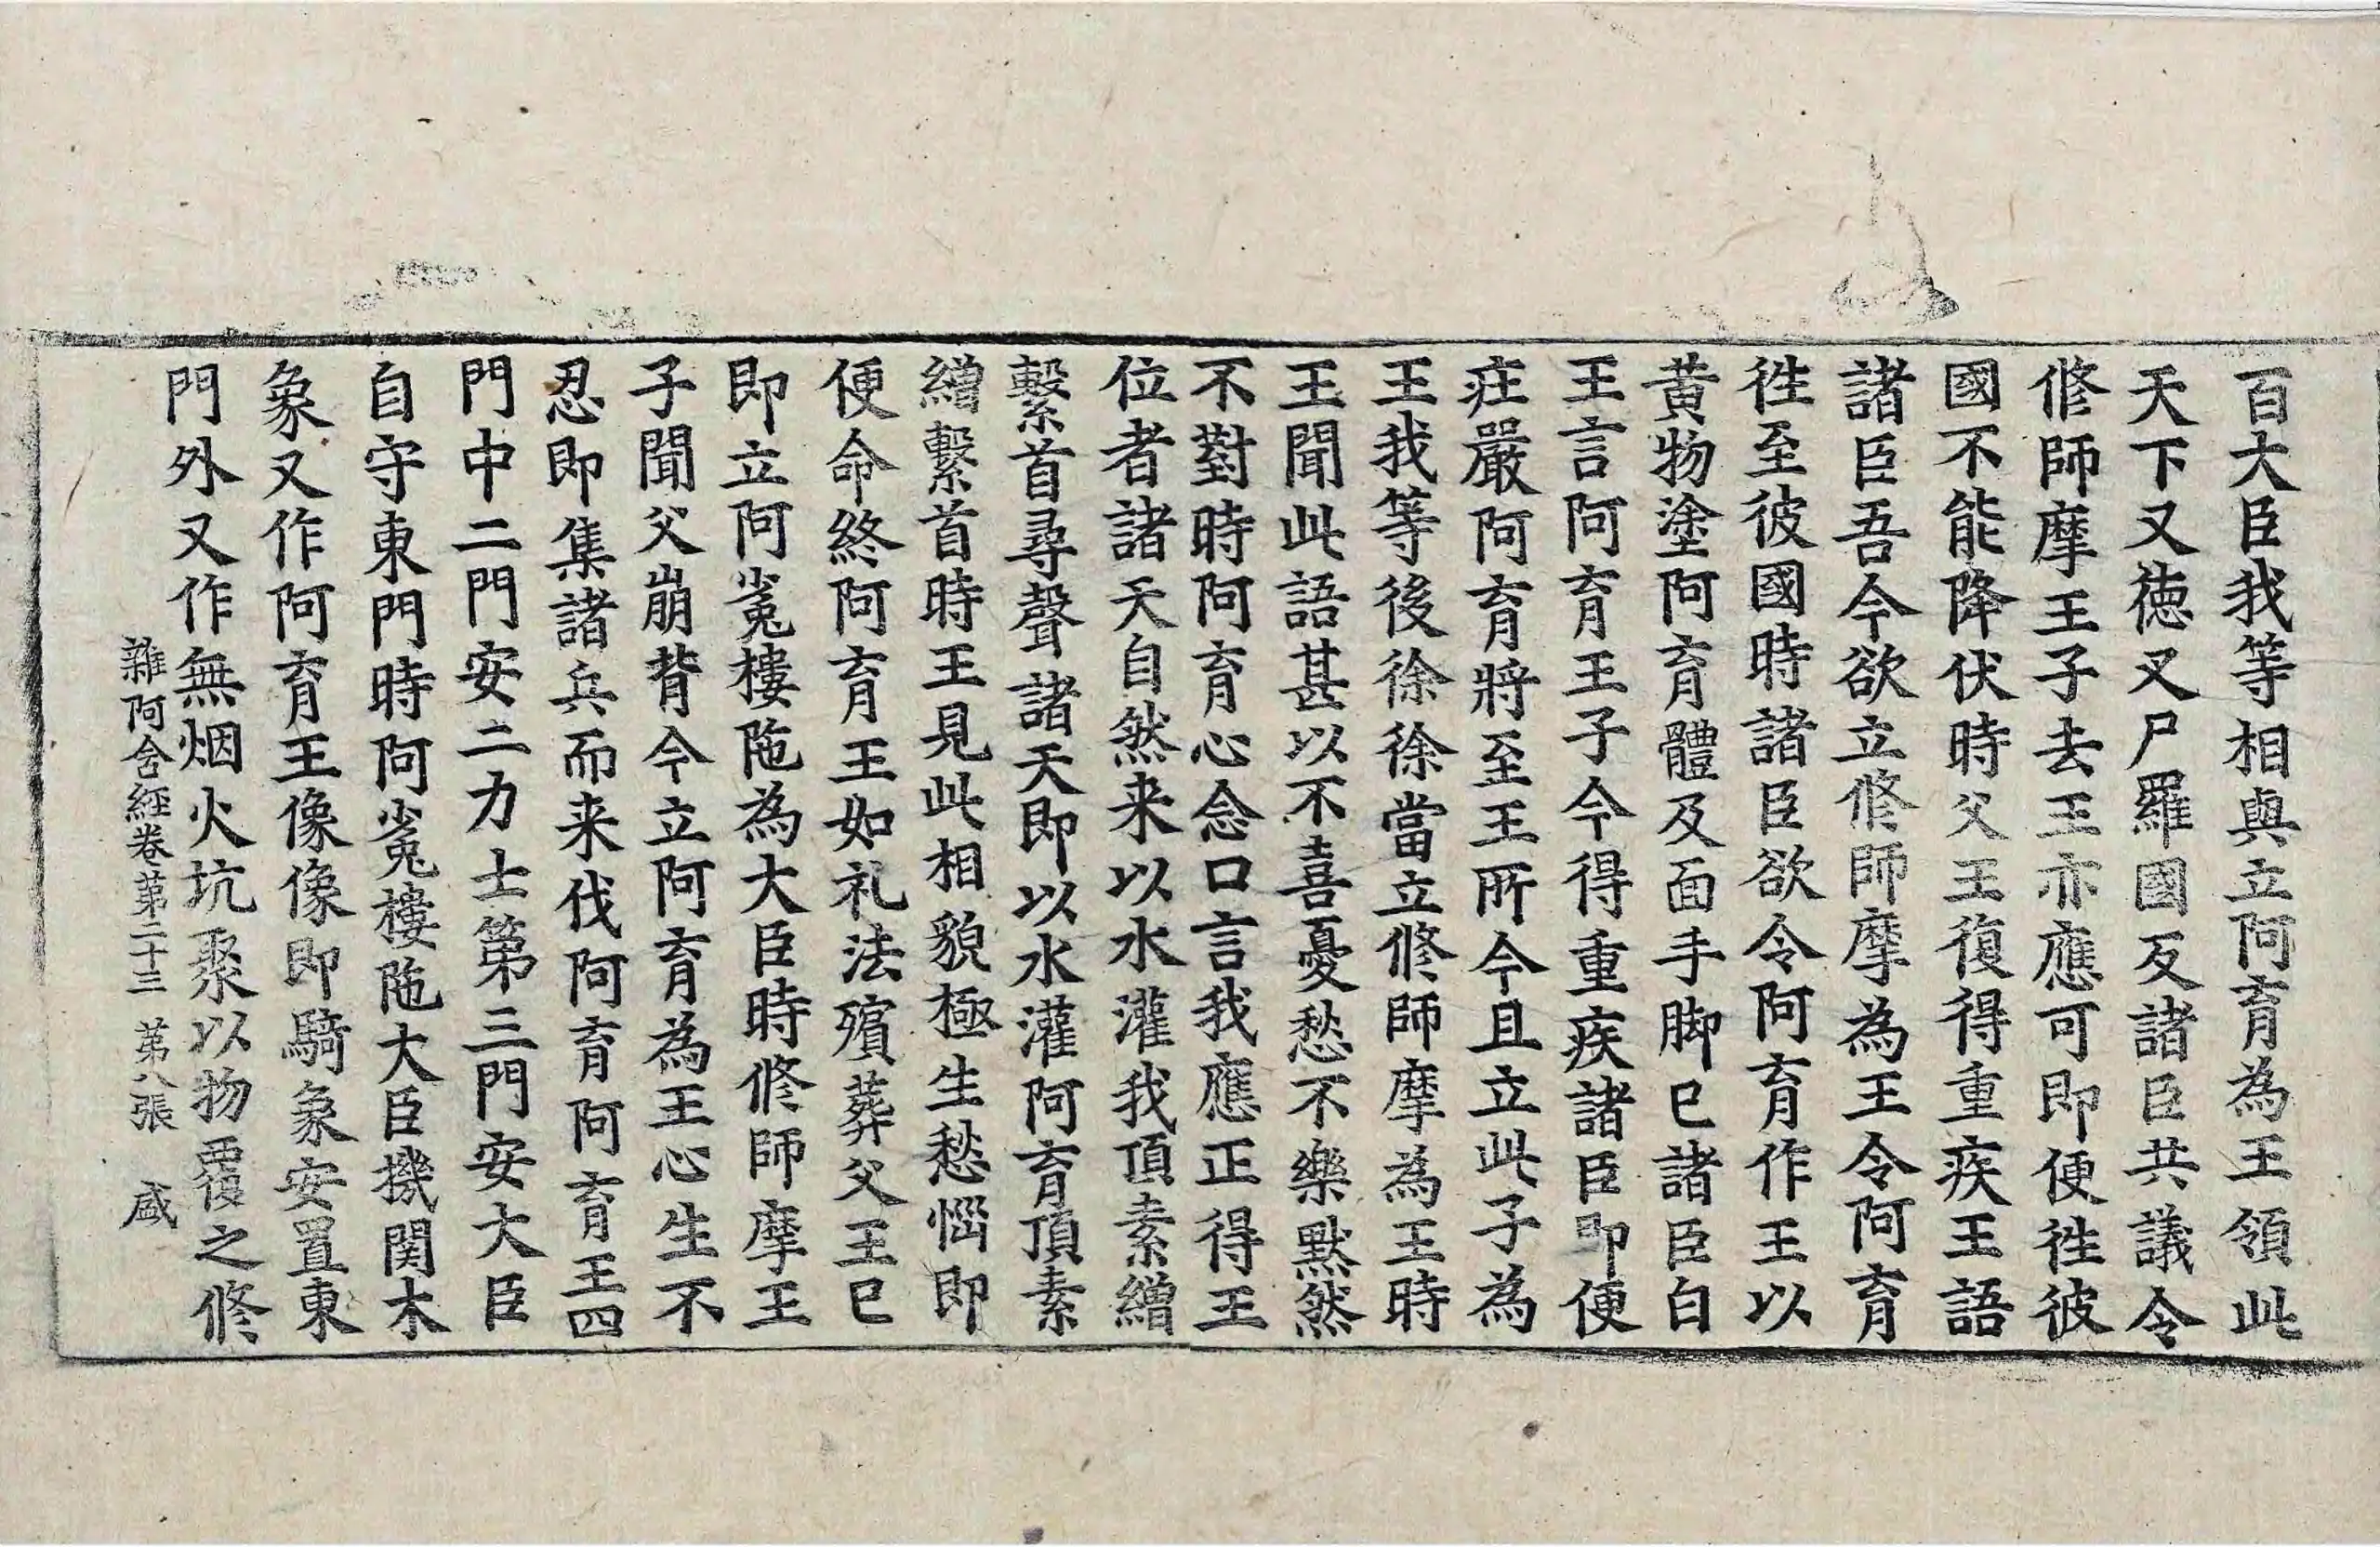 百大臣我等相與立阿育為王領此
天下又德又尸羅國反諸臣共議令
修師摩王子去王亦應可即便徃彼
國不能降伏時父王復得重疾王語
諸臣吾今欲立修師摩為王令阿育
徃至彼國時諸臣欲令阿育作王以
黃物塗阿育體及面手脚已諸臣白
王言阿育王子今得重疾諸臣即便
疘嚴阿育將至王所今且立此子為
王我等後徐徐當立修師摩為王時
王聞此語甚以不喜憂愁不樂默然
不對時阿育心念口言我應正得王
位者諸天自然来以水灌我頂素繒
繫首尋聲諸天即以水灌阿育頂素
繒繫首時王見此相貌極生愁惱即
便命終阿育王如礼法殯葬父王已
即立阿㝹樓陁為大臣時修師摩王
子聞父崩背今立阿育為王心生不
忍即集諸兵而来伐阿育阿育王四
門中二門安二力士第三門安大臣
自守東門時阿㝹樓陁大臣機関木
象又作阿育王像像即騎象安置東
門外又作無烟火坑聚以物覆之修
雜阿含經卷第二十三 第八張 咸